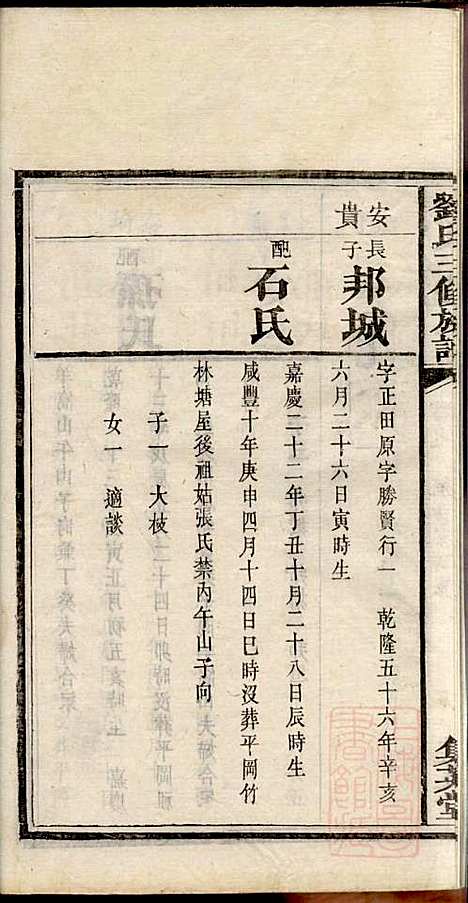 劉氏三修族譜
集英堂
安貴
長子
邦城
字正田原字勝賢行一 乾隆五十六年辛亥
六月二十六日寅時生
配
石氏
嘉慶二十二年丁丑十月二十八日辰時生
咸豐十年庚申四月十四日巳時沒葬平岡竹
林塘屋後祖姑張氏禁內午山子向
子一 大枝
女一 適談